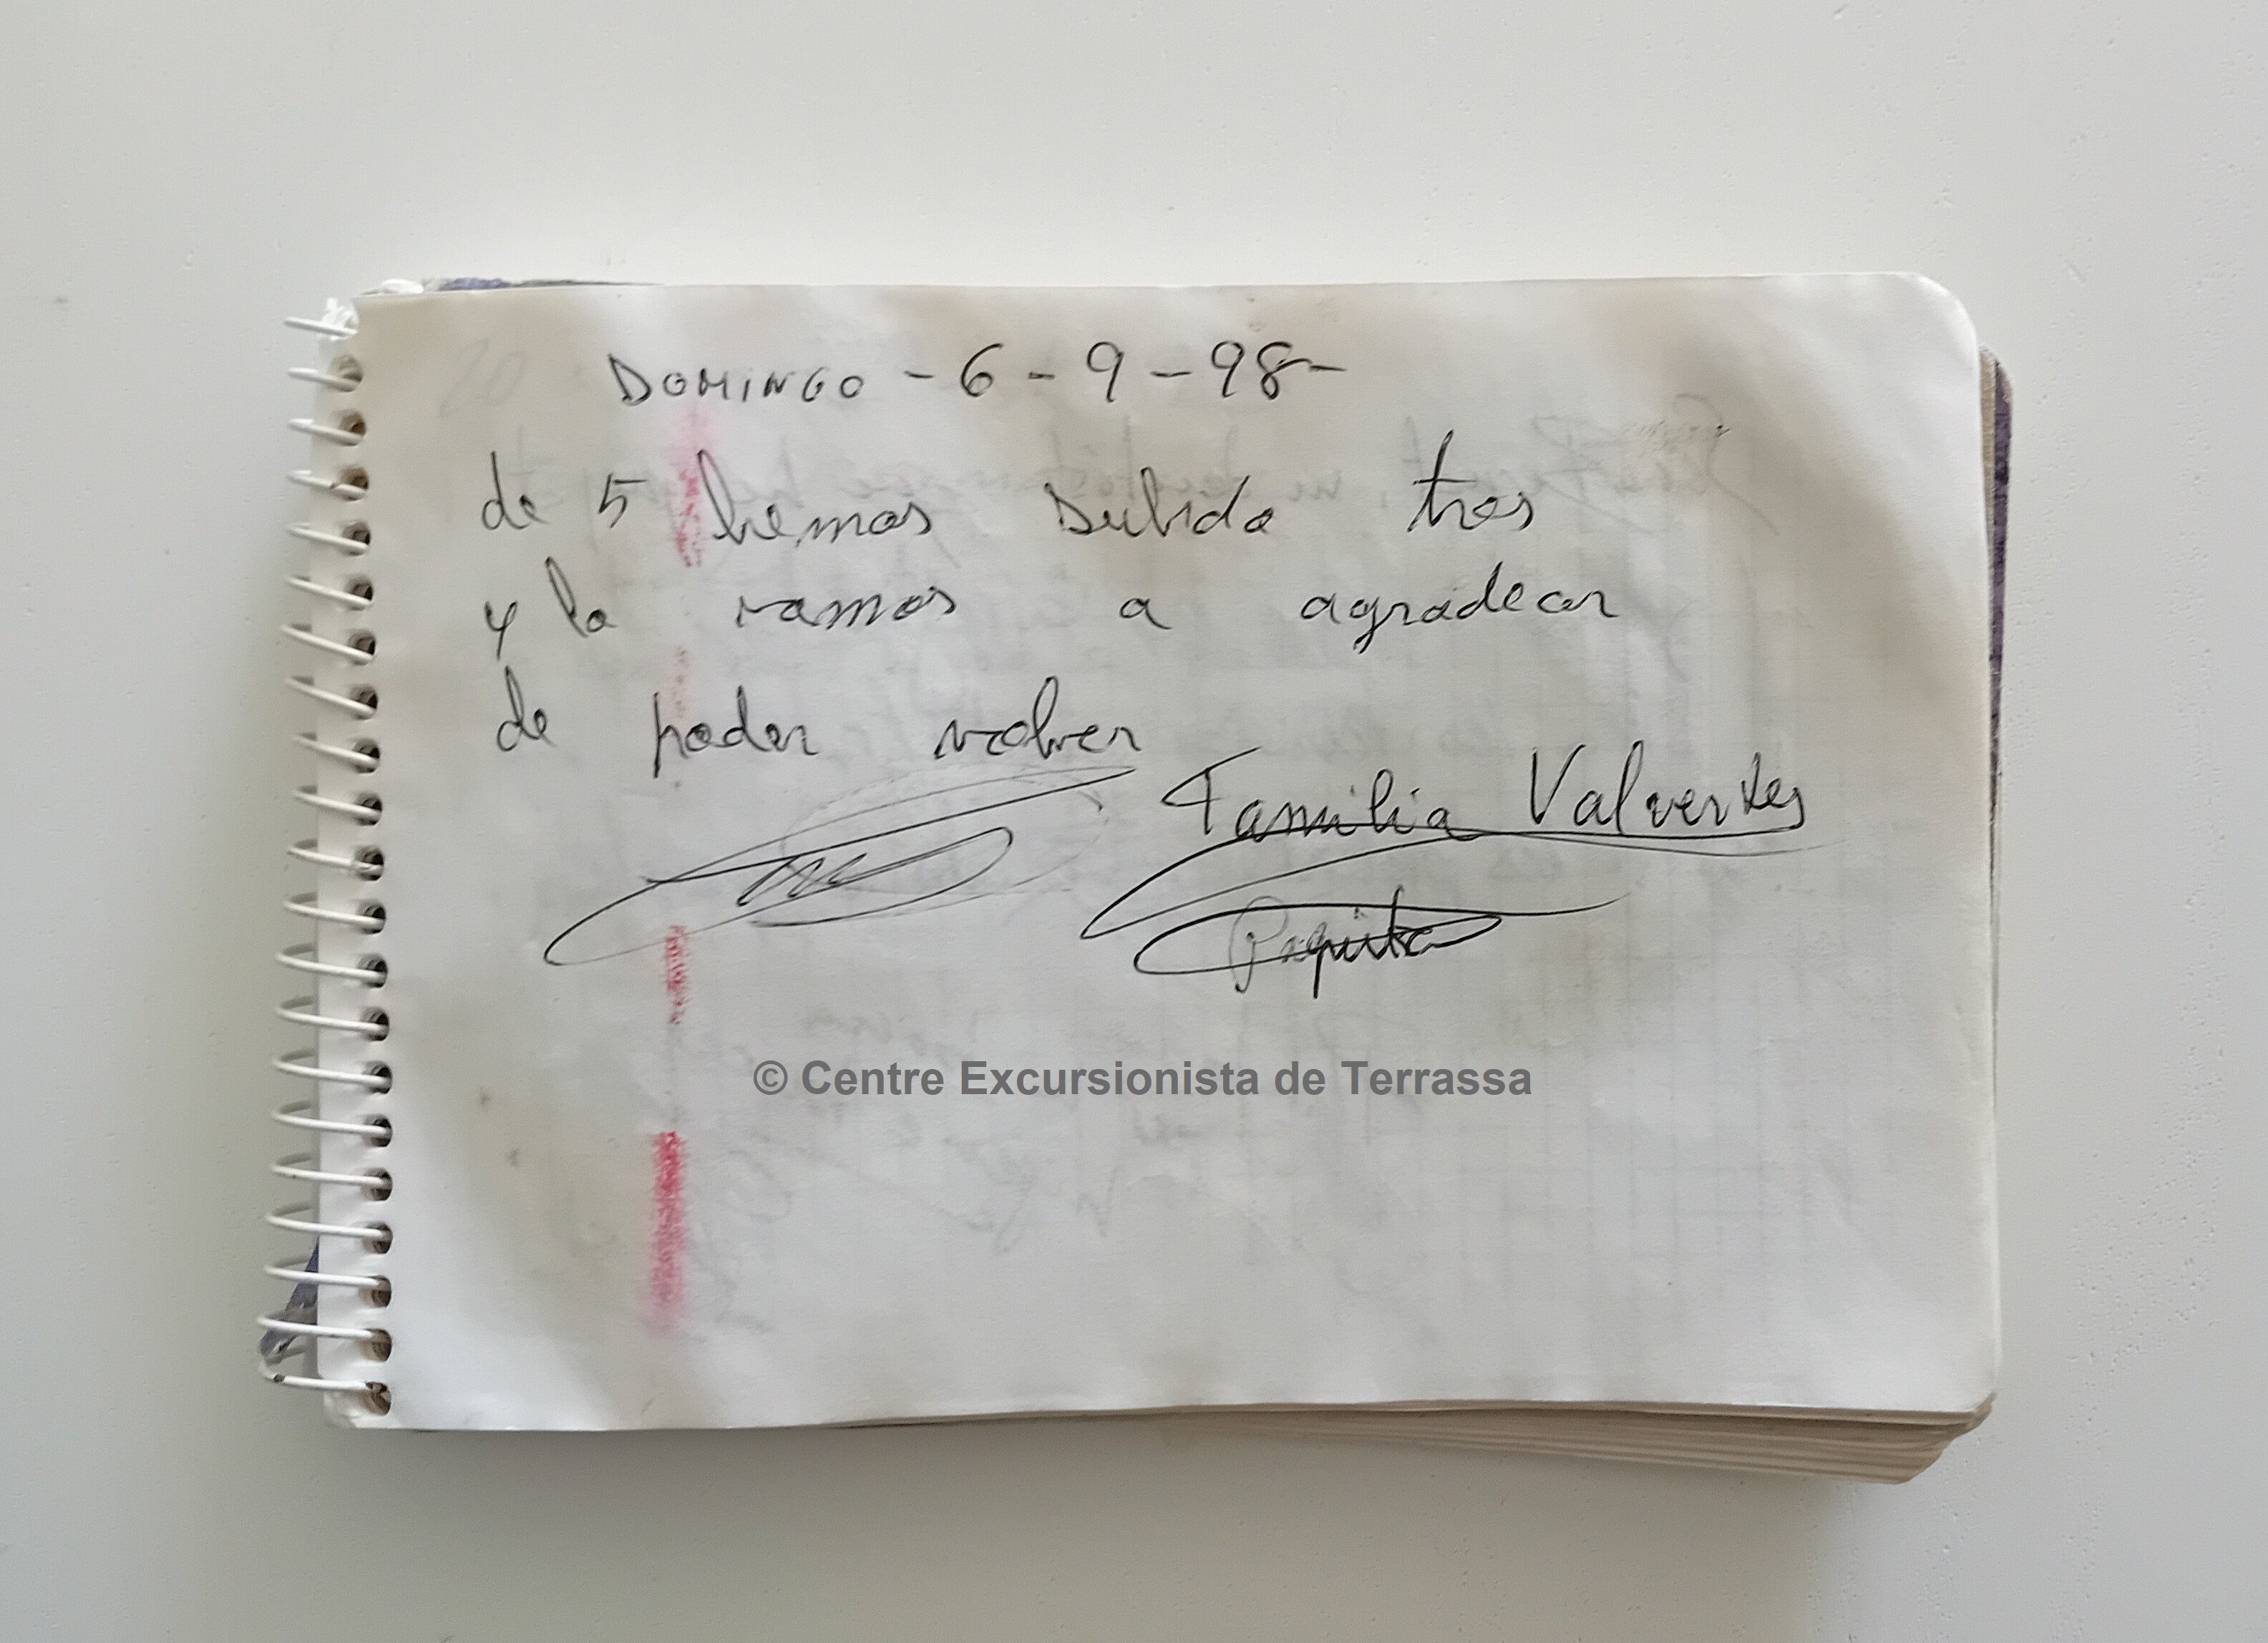 DOMINGO - 6 - 9 - 98 -
de 5 hemos subido tres
y lo vamos a agradecer
de poder volver
Familia Valverdes
Paquita
© Centre Excursionista de Terrassa